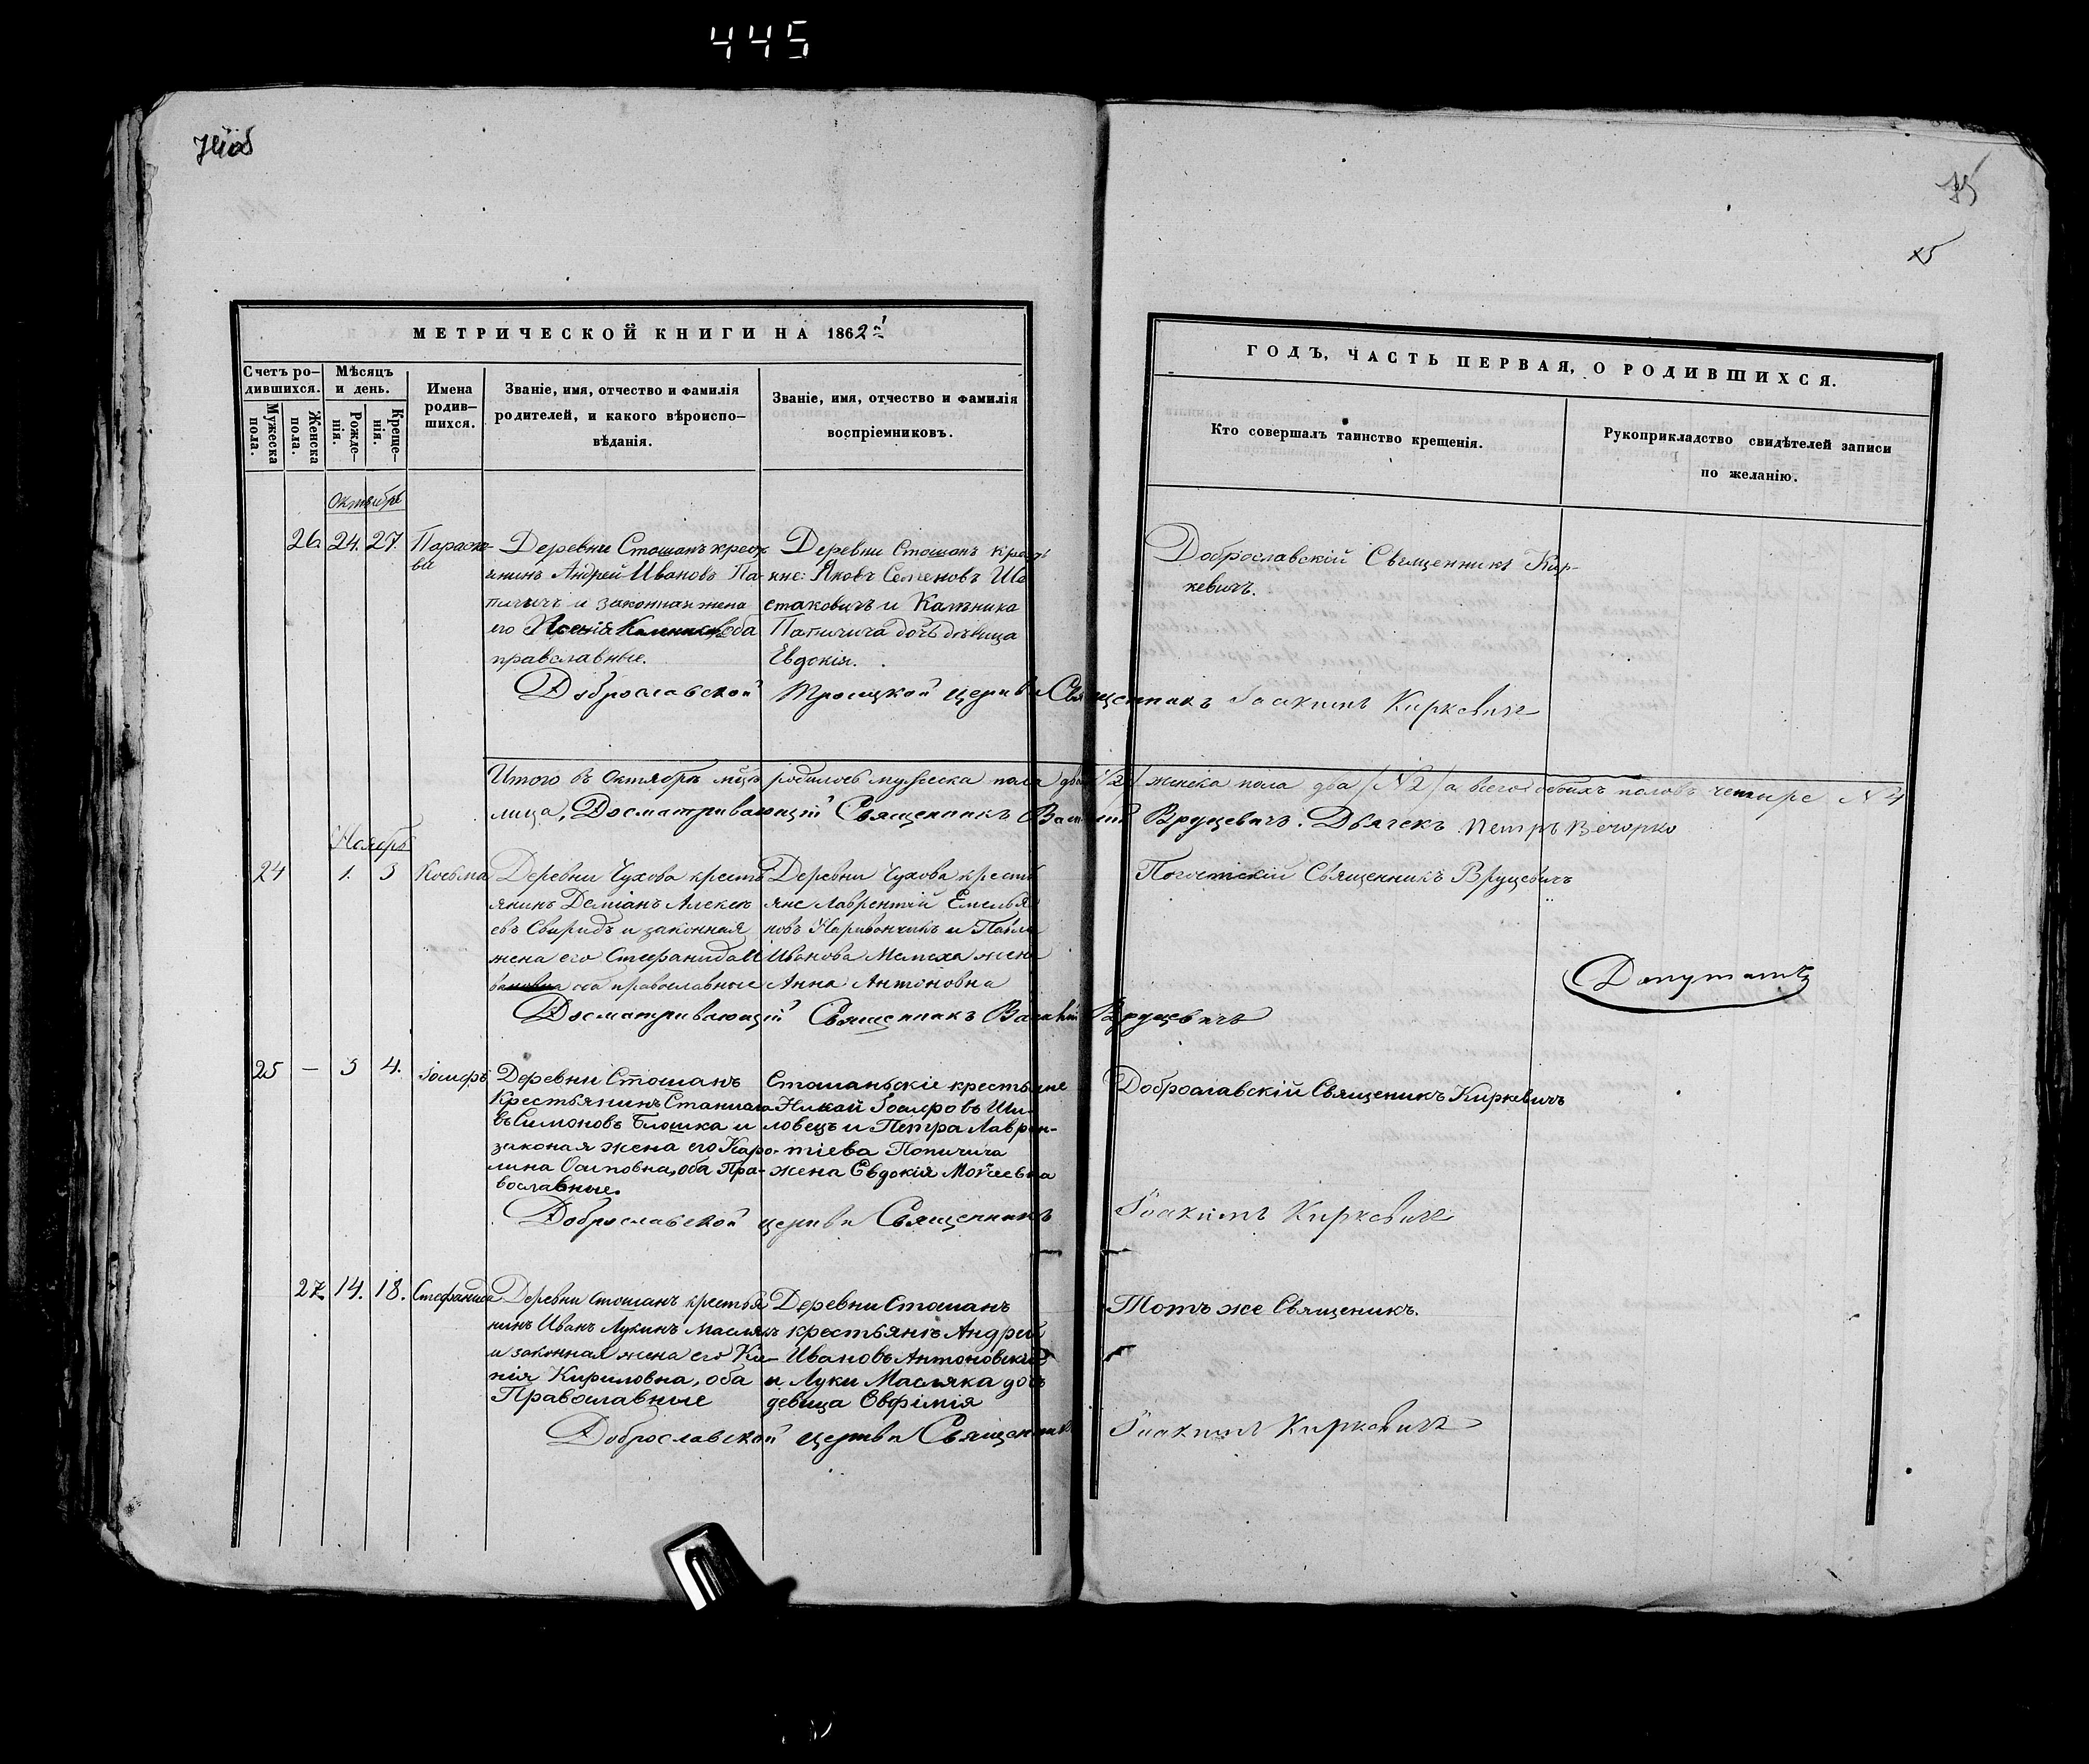 445
75
МЕТРИЧЕСКОЙ КНИГИ НА 1862й
ГОДЪ, ЧАСТЬ ПЕРВАЯ, О РОДИВШИХСЯ.
Счетъ ро-
дившихся.
Мужеска
пола.
Женска
пола.
Мѣсяцъ
и день.
Рожде-
нія.
Креще-
нія.
Имена
родив-
шихся.
Званіе, имя, отчество и фамилія
родителей, и какого вѣроиспо-
вѣданія.
Званіе, имя, отчество и фамилія
воспріемниковъ.
Кто совершалъ таинство крещенія.
Рукоприкладство свидѣтелей записи
по желанію.
Октябрь
26. 24. 27.
Параске-
ва
Деревни Стошанъ крест
янинъ Андрей Ивановъ Па-
пичичъ и законная жена
его Ксенія оба
православные.
Деревни Стошанъ кресть
яне: Яковъ Семеновъ Ше
стаковичъ и Калѣника
Папичича дочь дѣвица
Евдокія.
Доброславскій Священникъ Кир-
кевичъ.
Доброславской Троицкой церкви Священникъ Іоакимъ Киркевичъ
Итого въ Октябрѣ мцѣ родилось мужеска пола два /2/ женска пола два /№2/ а всего обоихъ половъ четыре №4
лица, Досматривающій Священникъ Василій Вруцевичъ. Дьячекъ Петръ Вечорко
Ноябрь
24 1. 3
Косьма
Деревни Чухова кресть
янинъ Деміанъ Алексѣ
евъ Свиридъ и законная
жена его Стефанида И
вановна оба православные
Деревни Чухова кресть
яне Лаврентій Емелья
новъ и Павла
Иванова жена
Анна Антоновна
Погостскій Священникъ Вруцевичъ
Депутатъ
Досматривающій Священникъ Василій Вруцевичъ
25 — 3 4.
Іосифъ
Деревни Стошанъ
Крестьянинъ Станисла
въ Симоновъ Блошка и
законая жена его Каро-
лина Осиповна, оба Пра-
вославные.
Стошаньскіе крестьяне
Никай Іосифовъ Ши-
ловецъ и Петра Лаврен-
тіева Попичича
жена Евдокія Моѵсеевна
Доброславскій Священикъ Киркевичъ
Доброславской церкви Священникъ Іоакимъ Киркевичъ
27. 14. 18.
Стефанида
Деревни Стошанъ крестья
нинъ Иванъ Лукинъ Маслякъ
и законная жена его Ки-
нія Кириловна, оба
Православные
Деревни Стошанъ
крестьянѣ Андрей
Ивановъ Антоновскій
и Луки Масляка дочь
девица Евфімія
Тотъ же Священикъ.
Доброславской церкви Священникъ Іоакимъ Киркевичъ